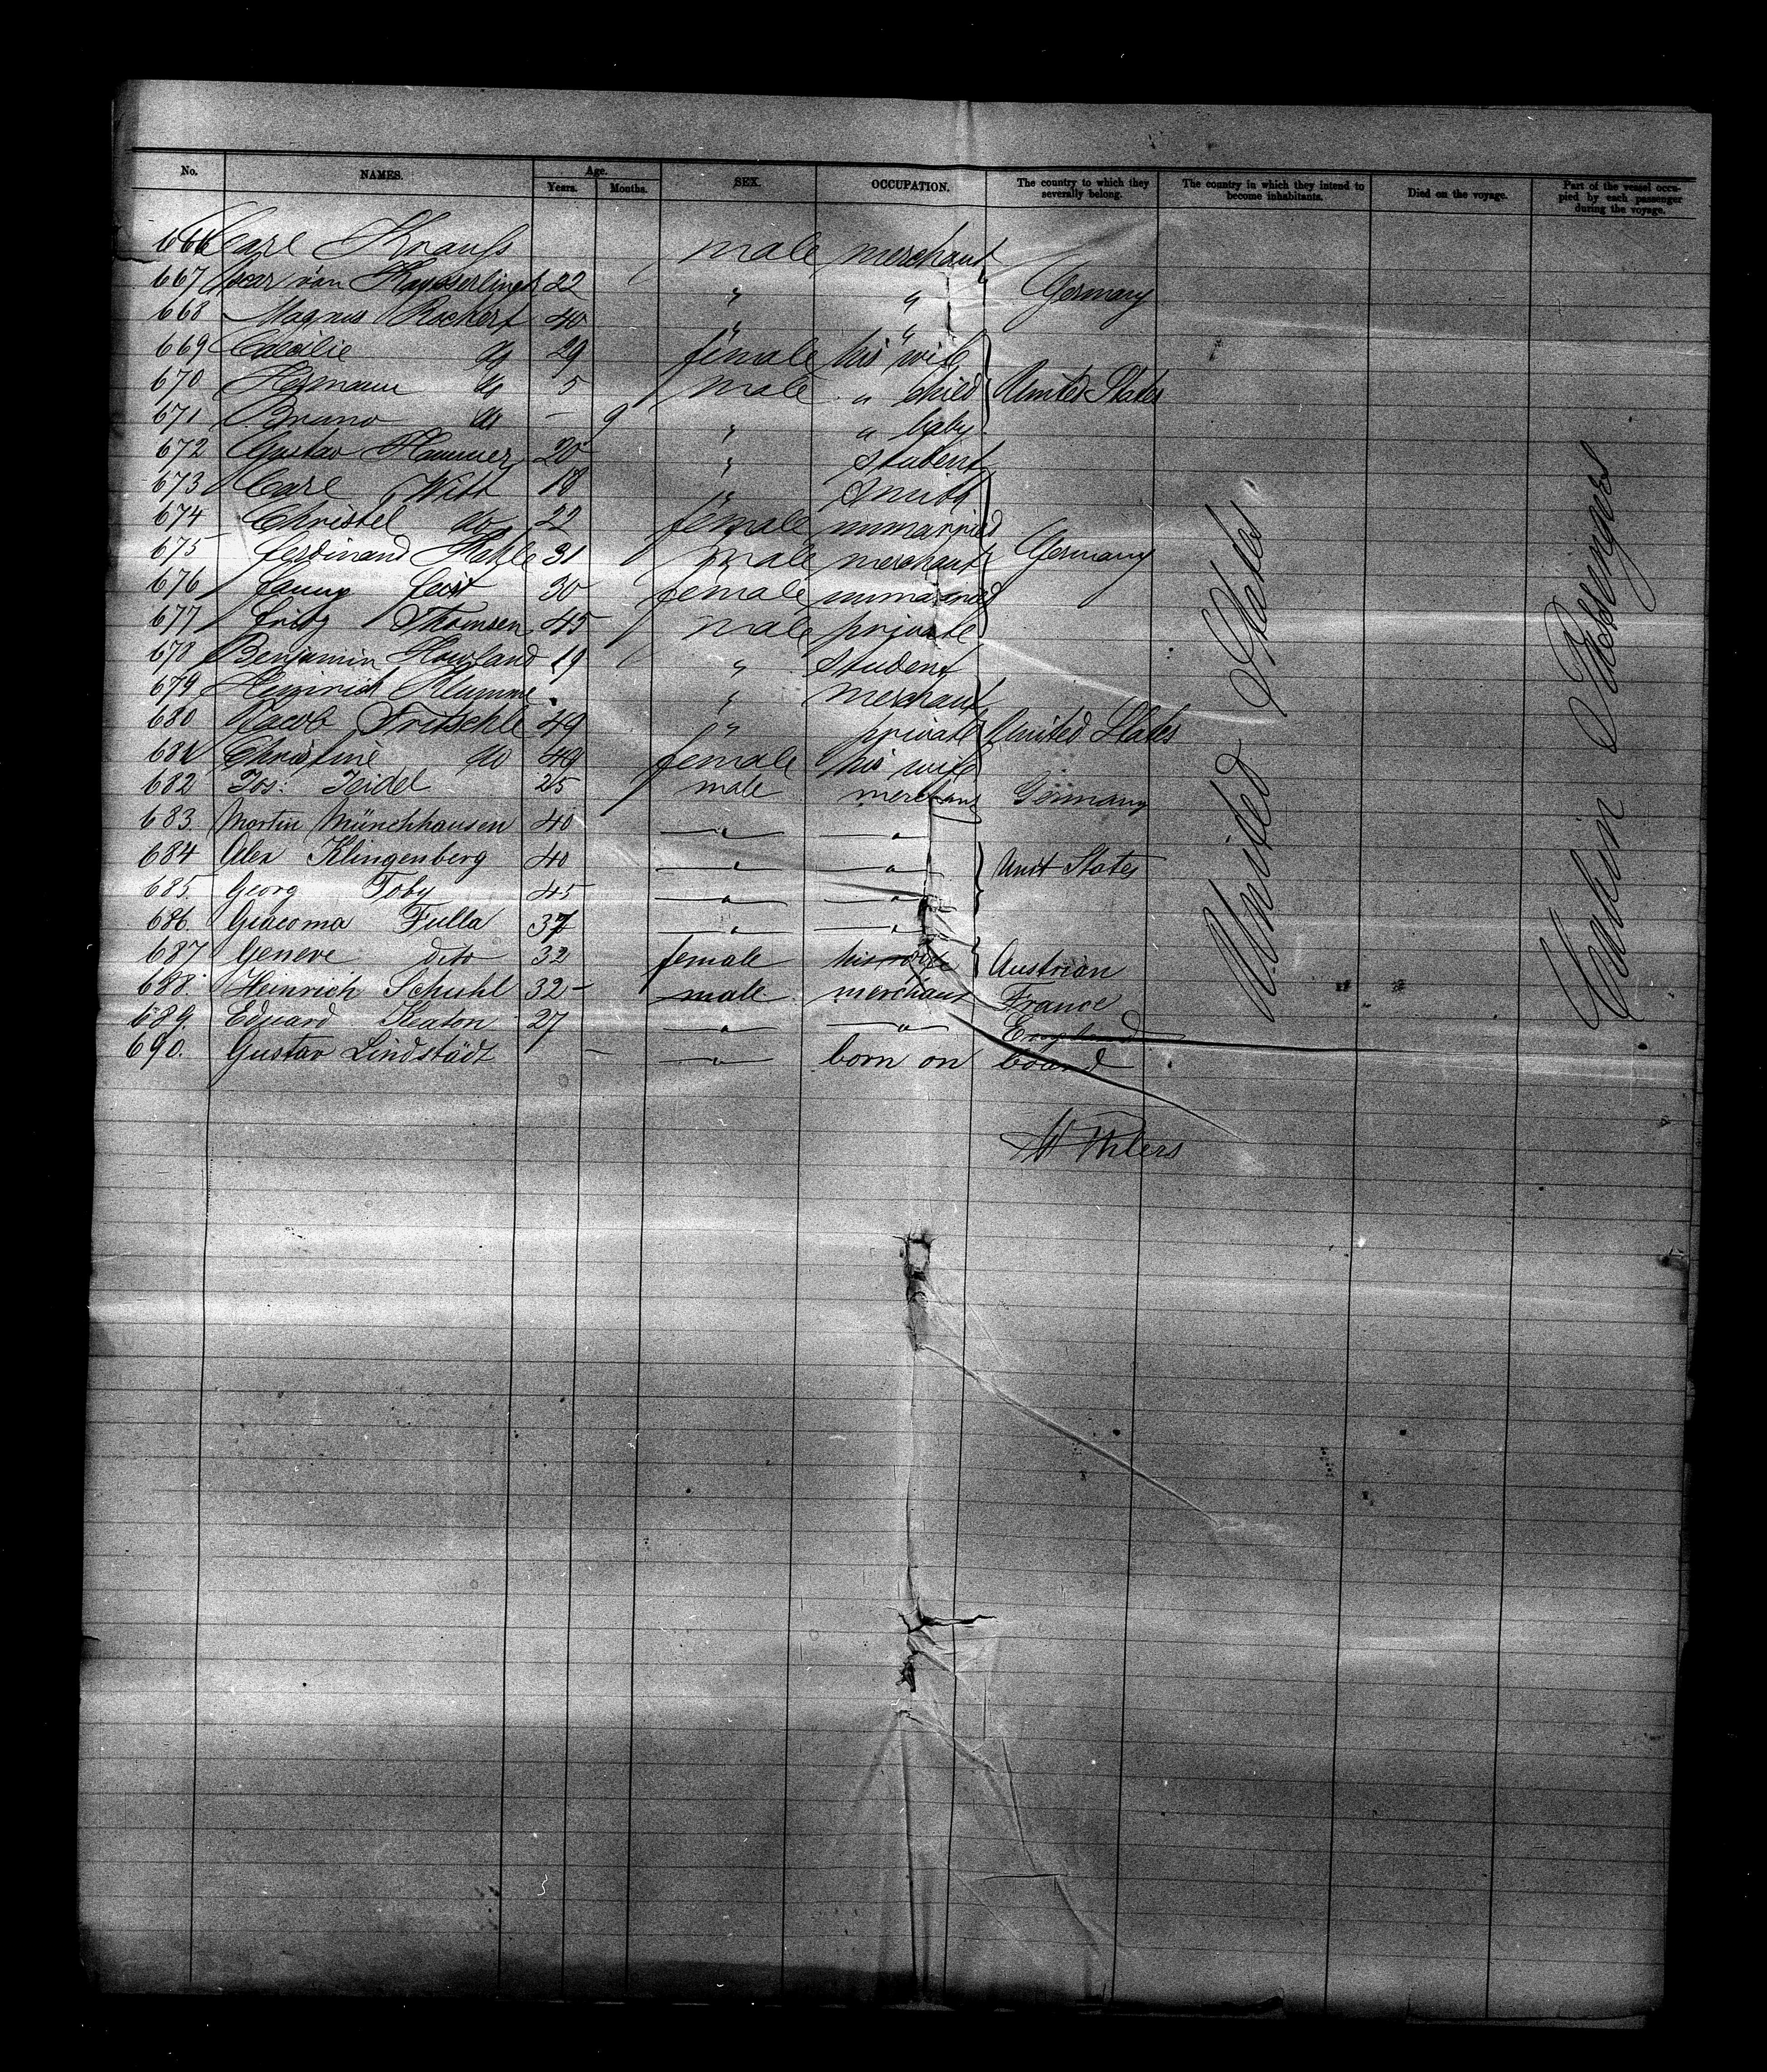 No. NAMES. Age. Years. Months. SEX. OCCUPATION. The country to which they severally belong. The country in which they intend to become inhabitants. Died on the voyage. Part of the vessel occupied by each passenger during the voyage.
666 Carl Krauss male merchant
667 Oscar von Kaysserlingk 22 " " Germany
668 Magnus Rockert 40 " "
669 Cäcilie do 29 female his wife
670 Hermann do 5 male " child United States
671 Bruno do - 9 " " baby
672 Gustav Hammer 20 " student
673 Carl Witt 18 " smith
674 Christel do 22 female unmarried
675 Ferdinand 31 male merchant Germany
676 Fanny 30 female unmarried
677 Fritz Thomsen 45 male private
678 Benjamin Howland 19 " student
679 Heinrich Klumme " merchant
680 Jacob Fritschle 49 " private United States
681 Christine do 49 female his wife
682 Jos: Teidel 25 male merchant Germany
683 Martin Münchhausen 40 " "
684 Alex Klingenberg 40 " " Unit States
685. Georg Toby 45 " "
686. Giacoma Fulla 37 " "
687 Geneve dito 32 female his wife Austrian
688. Heinrich Schuhl 32 - male merchant France
689. Eduard Keaton 27 " " England
690. Gustav Lindstädt - " born on board
United States
Cabin Passengers